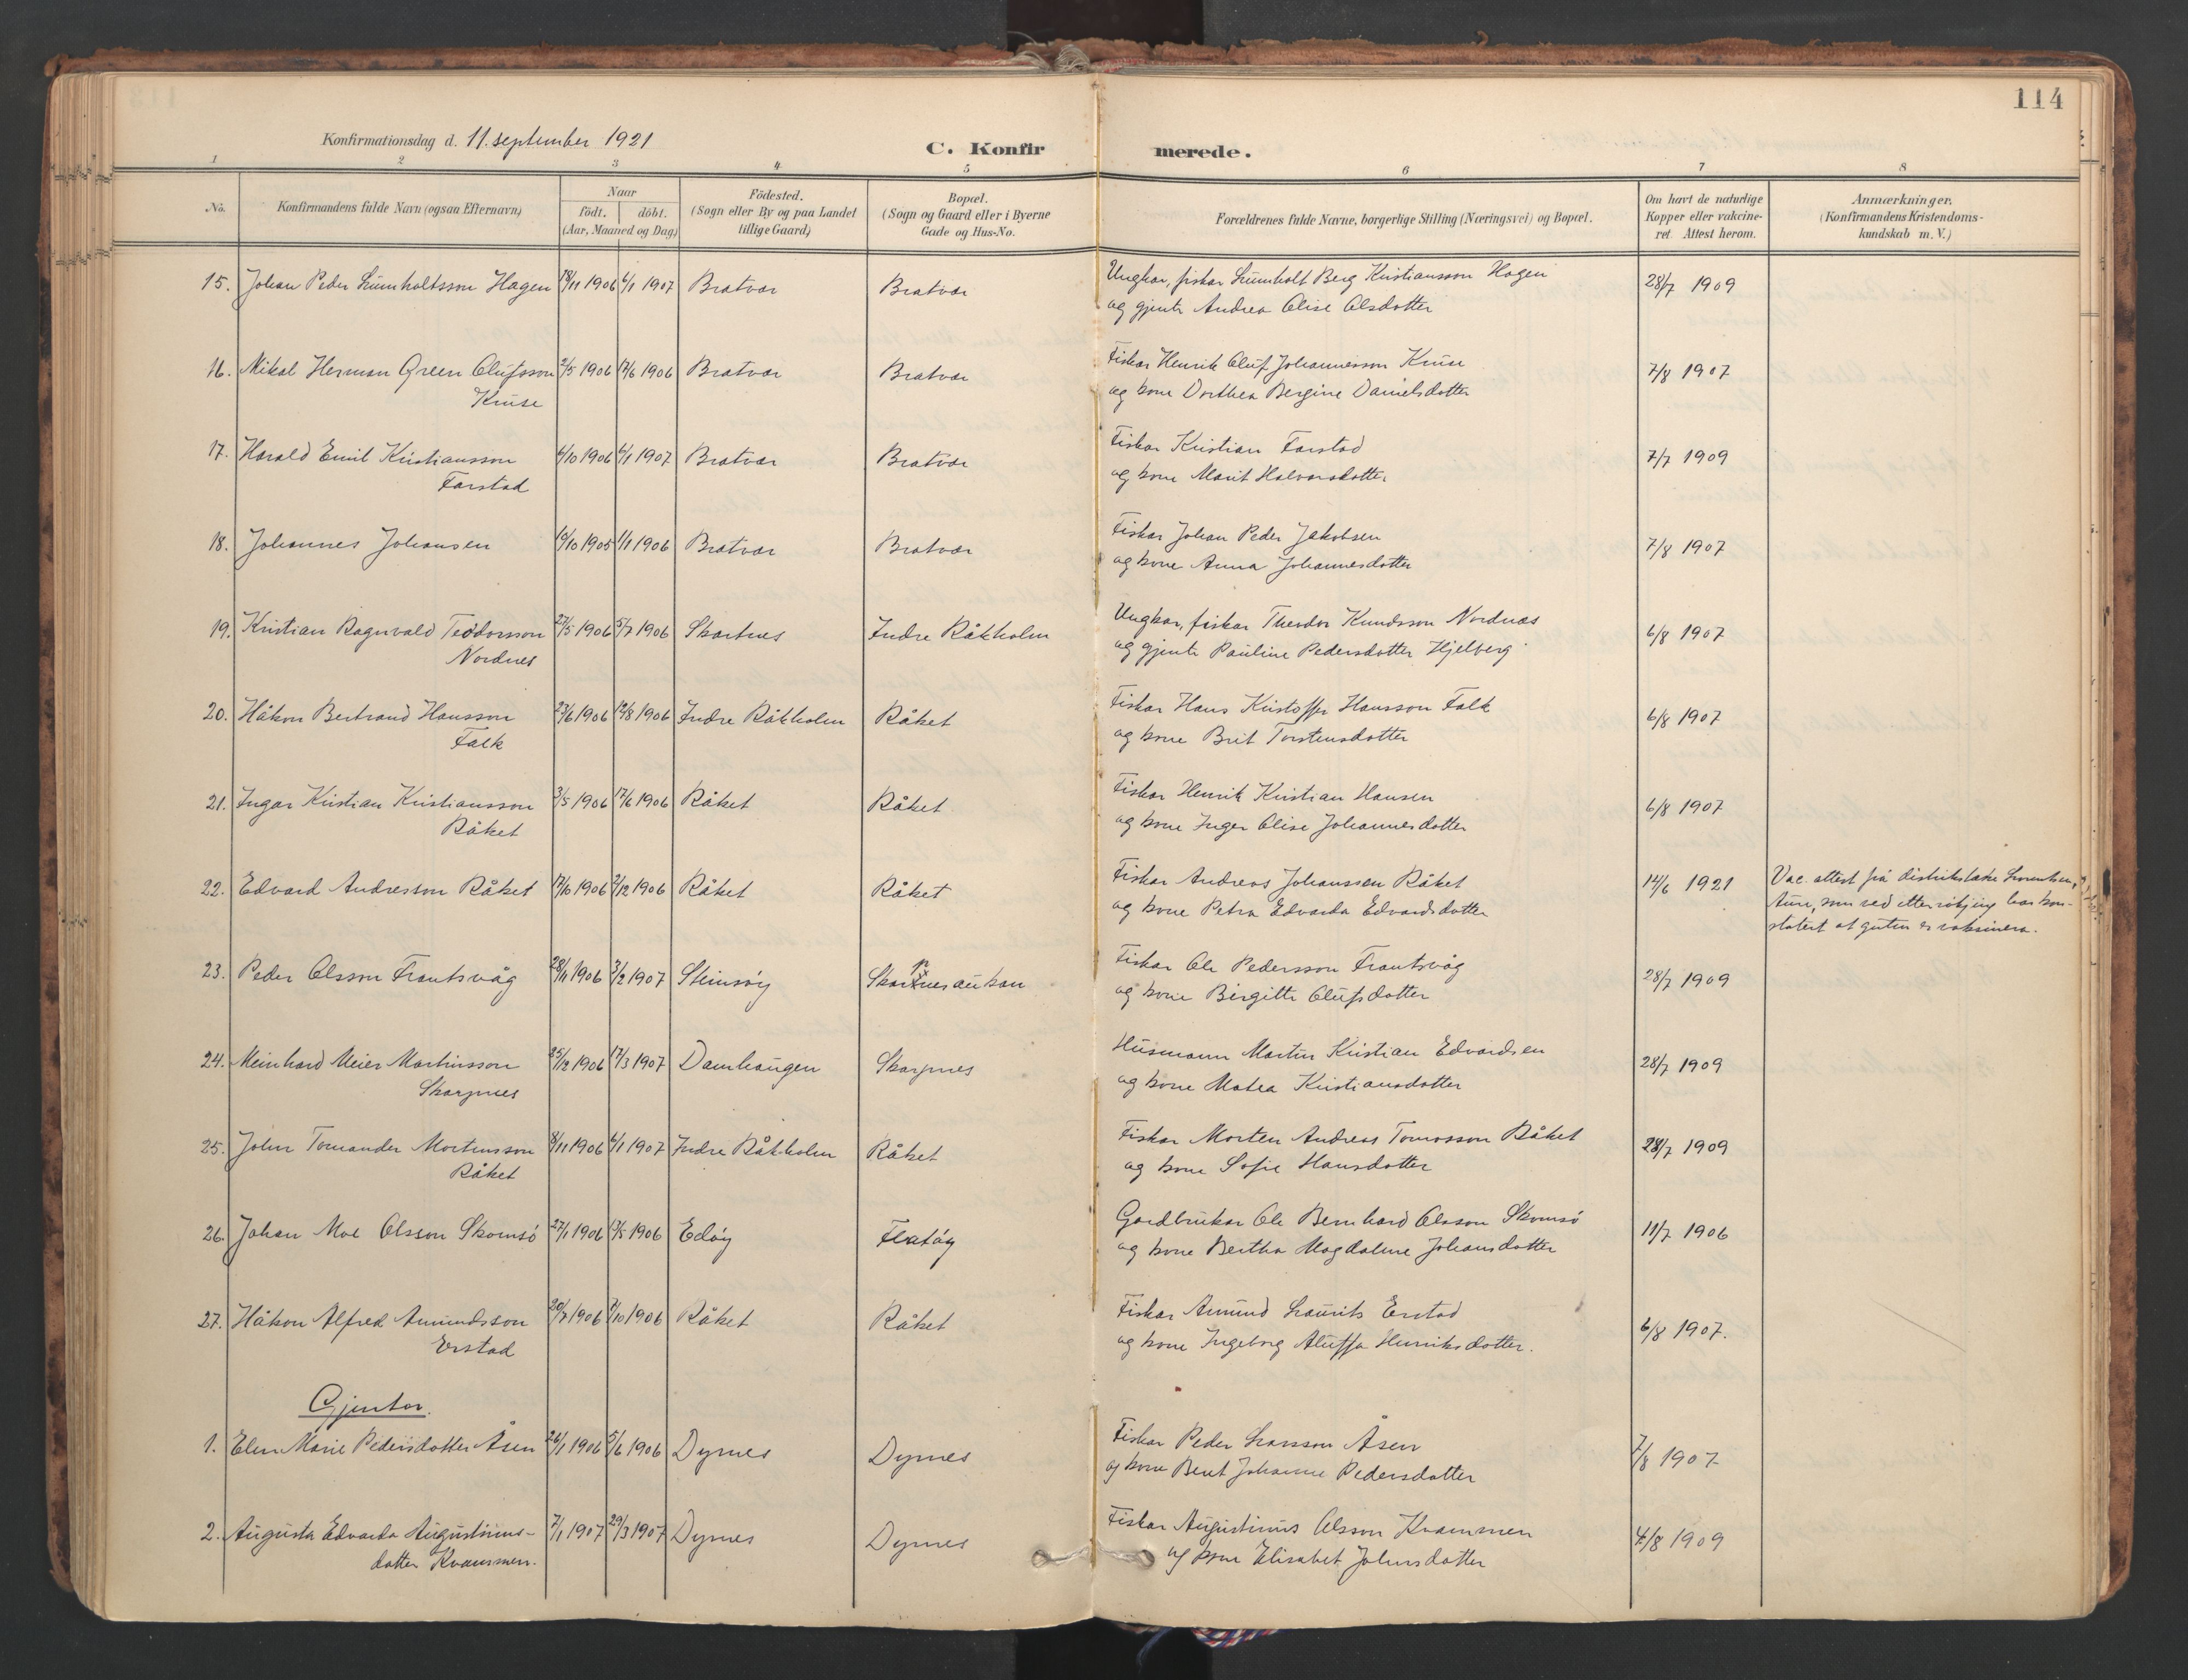 114
Konfirmationsdag d. 11. september 1921
C. Konfirmerede.
1 2 3 4 5 6 7 8
No. Konfirmandens fulde Navn (ogsaa Efternavn) Naar födt. döbt. (Aar, Maaned og Dag) Födested. (Sogn eller By og paa Landet tillige Gaard) Bopæl. (Sogn og Gaard eller i Byerne Gade og Hus-No. Forældrenes fulde Navne, borgerlige Stilling (Næringsvei) og Bopæl. Om havt de naturlige Kopper eller vakcineret. Attest herom. Anmærkninger. (Konfirmandens Kristendomskundskab m. V.)
15. Johan Peder Lumholtsson Hagen 18/11 1906 6/1 1907 Bratvær Bratvær Ungkar, fiskar Lumholt Berg Kristiansson Hagen 28/7 1909
og gjente Andrea Elise Olsdotter
16. Mikal Herman Green Olufsson 2/5 1906 17/6 1906 Bratvær Bratvær Fiskar Henrik Oluf Johannesson Kruse 7/8 1907
Kruse og kone Dorthea Bergine Danielsdotter
17. Harald Emil Kristiansson 6/10 1906 6/1 1907 Bratvær Bratvær Fiskar Kristian Farstad 7/7 1909
Farstad og kone Marit Halvorsdotter.
18. Johannes Johansen 10/10 1905 1/1 1906 Bratvær Bratvær Fiskar Johan Peder Jakobsen 7/8 1907
og kone Anna Johannesdotter
19. Kristian Ragnvald Teodorsson 27/5 1906 5/7 1906 Skartnes Indre Råkholm Ungkar, fiskar Theodor Knudsson Nordnæs 6/8 1907
Nordnes og gjente Pauline Pedersdotter Hjelberg
20. Håkon Bertrand Hansson 23/6 1906 12/8 1906 Indre Råkholm Råket Fiskar Hans Kristoffer Hansson Falk 6/8 1907
Falk og kone Brit Torstensdotter
21. Ingar Kristian Kristiansson 3/5 1906 17/6 1906 Råket Råket Fiskar Henrik Kristian Hansen 6/8 1907
Råket og kone Inger Elise Johannesdotter
22. Edvard Andresson Råket 17/10 1906 2/12 1906 Råket Råket Fiskar Andreas Johanssen Råket 14/6 1921 Vac. attest frå distriktslæke
og kone Petra Edvarda Edvardsdotter Aure, som ved har kon-
statert at guten er vaksinera.
23. Peder Olsson Frantsvåg 28/11 1906 3/2 1907 Steinsöy Skarpnesaukan Fiskar Ole Pedersson Frantsvåg 28/7 1909
og kone Birgitte Olufsdotter
24. Meinhard Meier Martinsson 25/12 1906 17/3 1907 Damhaugen Skarpnes Husmann Martin Kristian Edvardsen 28/7 1909
Skarpnes og kone Matea Kristiansdotter
25. John Tomander Mortensson 8/11 1906 6/1 1907 Indre Råkholm Råket Fiskar Morten Andreas Tomasson Råket 28/7 1909
Råket og kone Sofie Hansdotter
26. Johan Moe Olsson Skomsö 27/1 1906 13/5 1906 Edöy Flatöy Gardbrukar Ole Bernhard Olsson Skomsö 11/7 1906
og kone Bertha Magdalene Johansdotter
27. Håkon Alfred Amundsson 20/7 1906 7/10 1906 Råket Råket Fiskar Amund Laurits Erstad 6/8 1907.
Erstad og kone Ingeborg Aluffa Henriksdotter.
Gjentor.
1. Elen Marie Pedersdotter Åsen 26/1 1906 5/6 1906 Dyrnes Dyrnes Fiskar Peder Larsson Åsen 7/8 1907
og kone Berit Johanne Pedersdotter
2. Augusta Edvarda Augustinus- 7/1 1907 29/3 1907 Dyrnes Dyrnes Fiskar Augustinus Olsson Kvammen 4/8 1909
dotter Kvammen. og kone Elisabet Johnsdotter